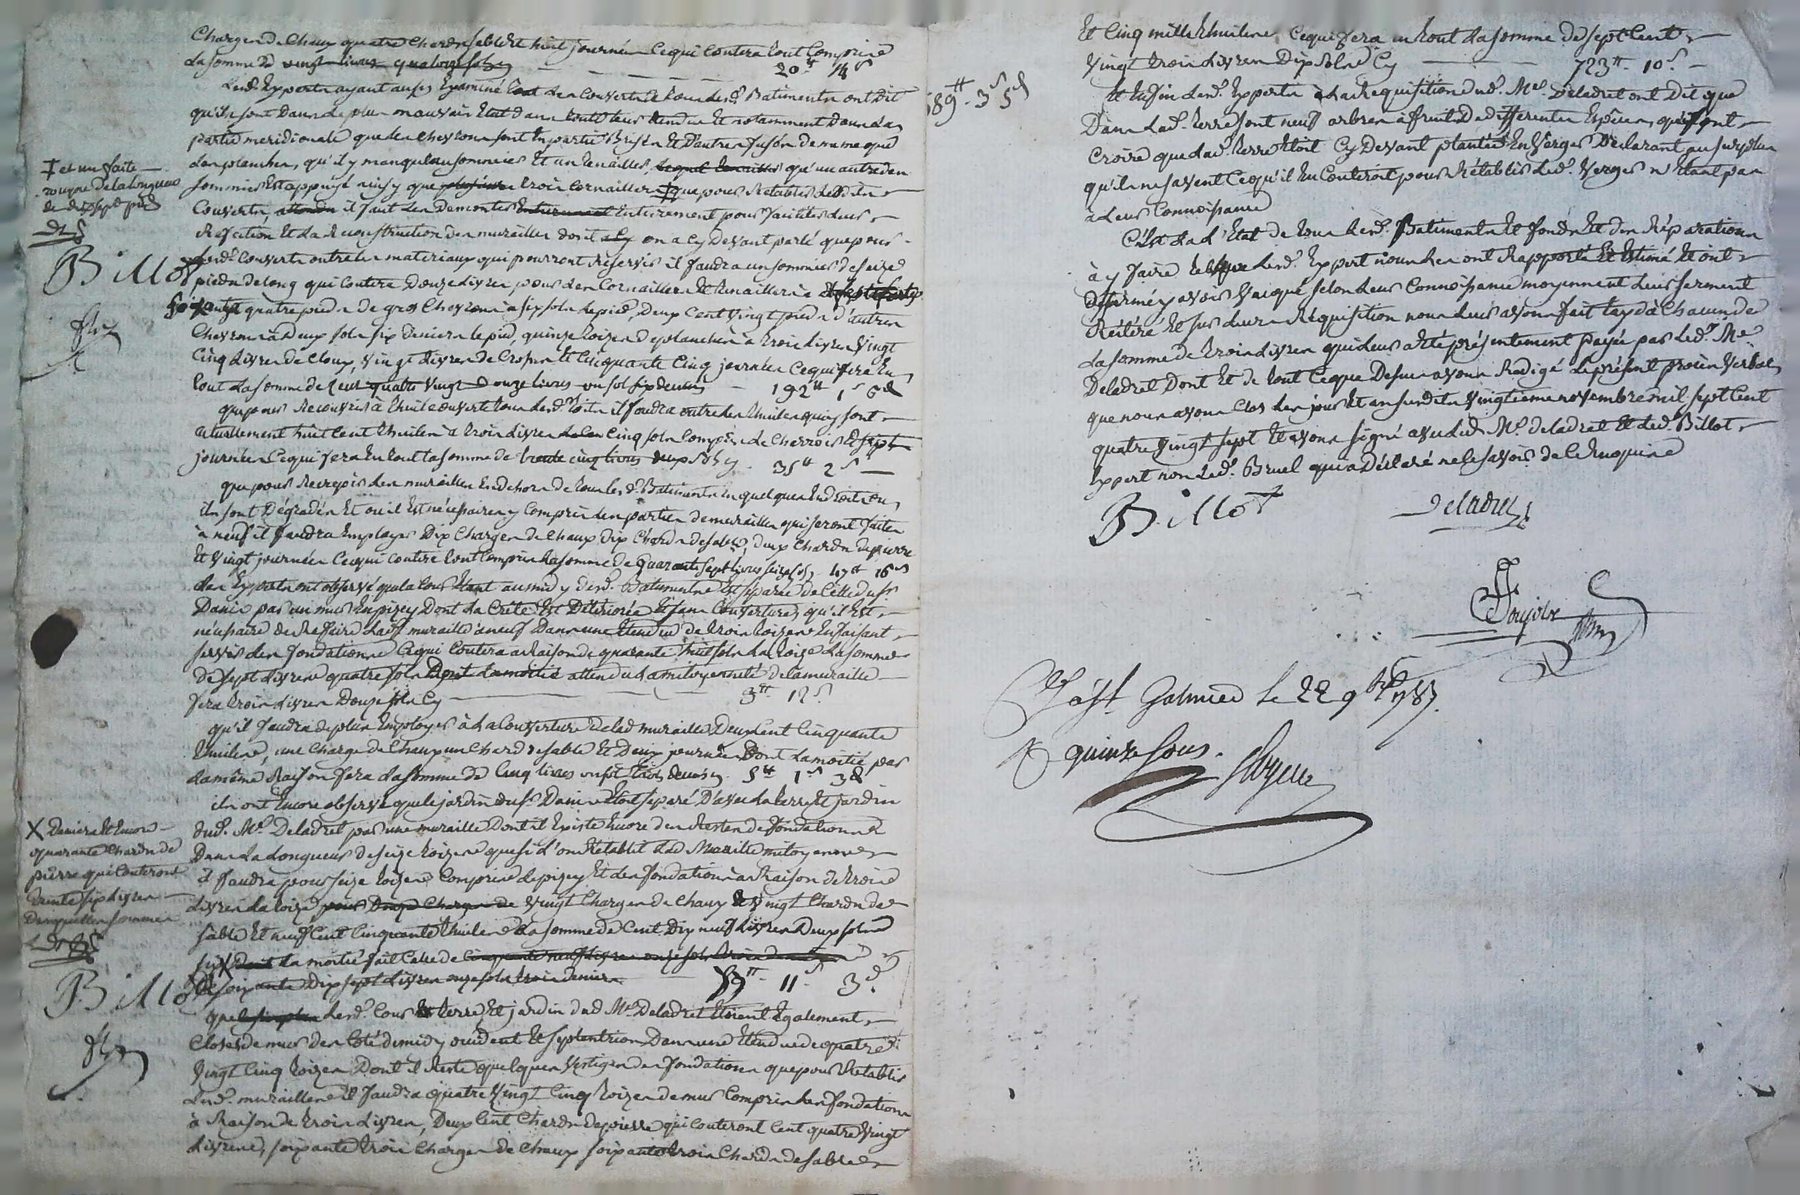 Charges de Chaux quatre Chards sable Et huit journées Ce qui Coutera tout Comprine
La somme de vingt livres quatorze sols 20 tt 14 s
Lesd. Experts ayant aussi Examiné les Couverts de tous lesd. Batiments ont dit
qu'ils sont Dans le plus mauvais Etat dans toute leur Etendue Et notamment Dans la
partie meridionale que les Chevrons sont En partie Brisés Et d'autres usés de meme que
les planches, qu'il y manque un sommier Et un qu'un autre den
sommiers Est appuyé ainsy que trois Cornailles ‡ que pour Retablir lesdits
‡ et un faite
rompu de la longueur
de dix sept pieds
Couverts il faut les Demonter Entierement pour faciliter leur
Refection Et la Reconstruction des murailles dont on a Cy devant parlé que pour
Billot
lesd. Couverts outre les materiaux qui pourront Reservir il faudra un sommier de seize
pieds de long qui Coutera Douze livres pour les Cornailles Et
soixante quatre pieds de gros Chevrons à six sols le pied, Deux Cent vingt pieds d'autres
Chevrons à Deux sols six deniers le pied, quinze toizes de planches à trois livres vingt
Cinq livres de Cloux, vingt livres de Et Cinquante Cinq journées Ce qui fera En
tout la somme de Cent quatre vingt Douze livres un sol six deniers 192 tt 1 s 6 d
que pour Recouvrir à thuile ouverte tous lesd. toits il faudra outre les thuiles qui y sont
actuellement huit Cent thuiles à trois livres Cinq sols Compris le Charrois Et sept
journées Ce qui fera En tout la somme de trente cinq livres deux sols Cy 35 tt 2 s
que pour Recrepir les murailles En dehors de tous lesd. Batiments En quelques Endroits ou
ils sont Dégradés Et ou il Est nécessaire y Compris les parties de murailles qui seront faites
à neuf il faudra Employer Dix Charges de Chaux dix Chards de sable, deux Chards de pierre
Et vingt journées Ce qui Coutera tout Compris La somme de quarante sept livres seize sols 47 tt 16 s
Les Experts ont observé que la Cour Etant au midy desd. Batiments Est separée de Celle du sr
Danie par un mur En pizey Dont la Crete Est Détériorée Et sans Couverture, qu'il Est
nécessaire de Reffaire lad. muraille à neuf Dans une Etendue de trois toizes En faisant
servir les fondations Ce qui Coutera à Raison de quarante huit sols la toize La somme
de sept livres quatre sols Dont La moitié attendu la mitoyenneté de la muraille
sera trois livres Douze sols Cy 3 tt 12 s
qu'il faudra de plus Employer à la Couverture de lad. muraille Deux Cent Cinquante
thuiles, une Charge de Chaux un Chard de sable Et Deux journées Dont la moitié par
la même Raison sera la somme de Cinq livres un sol trois deniers 5 tt 1 s 3 d
ils ont Encore observé que le jardin du sr Danie Etoit separé D'avec la terre Et jardin
dud. Mr Deladret par une muraille Dont il Existe Encore des Restes de fondations
Dans La Longueur de seize toizes que si l'on Retablit lad. Muraille mitoyenne
X Deniers Et Encore
quarante Chards de
pierre qui Couteront
trente six livres
Desquelles sommes
il faudra pour seize toizes Comprise le pizey Et les fondations à Raison de trois
livres la toize vingt Charges de Chaux Et vingt Chards de
sable Et neuf Cent Cinquante thuiles La somme de Cent Dix neuf livres Deux sols
six X La moitié fait Celle de Cinquante neuf livres onze sols trois deniers
Billot
De soixante Dix sept livres onze sols trois deniers 11 s 3 d
que lesd. Cour terre Et jardin dud. Mr Deladret Etoient Egalement
Closes de mur des Coté de midy occident Et septentrion Dans une Etendue de quatre
vingt Cinq toizes Dont il Reste quelques vestiges des fondations que pour Retablir
lesd. murailles il faudra quatre vingt Cinq toizes de mur Compris les fondations
à Raison de trois livres, Deux Cent Chards de pierre qui Couteront Cent quatre vingt
livres, soixante trois Charges de Chaux soixante trois Chards de sable
589 tt 3 s 5 d
Et Cinq mille thuiles, Ce qui fera En tout La somme de sept Cent
vingt trois livres Dix sols Cy 723 tt 10 s
Et Enfin lesd. Experts à la Requisition dud. Mr Deladret ont Dit que
Dans lad. terre sont neuf arbres à fruit de differentes Especes, qui font
Croire que lad. terre Etoit Cy Devant plantée En verger Déclarant au surplus
qu'ils ne savent Ce qu'il En Couteroit pour Rétablir led. verger n'Etant pas
à Leur Connoissance
C'Est La L'Etat de tous lesd. Batiments Et fonds Et des Réparations
à y faire tel que lesd. Experts nous les ont Rapporté Et Estimé Et ont
affirmé y avoir vacqué selon leur Connoissance moyennant leur serment
Réitéré Et sur leur Réquisition nous leur avons fait taxe à Chacun de
La somme de trois livres qui leur a été présentement payée par led. Mr
Deladret Dont Et de tout Ce que Dessus avons Redigé Le présent procès verbal
que nous avons Clos les jour Et an susdits vingtieme novembre mil sept Cent
quatre vingt sept Et avons signé avec led. Mr Deladret Et led. Billot
Expert non led. Bruel qui a Déclaré ne le savoir de Ce Enquis
Billot
Deladret
à St Galmier Le 22 9bre 1787.
R quinze sous.